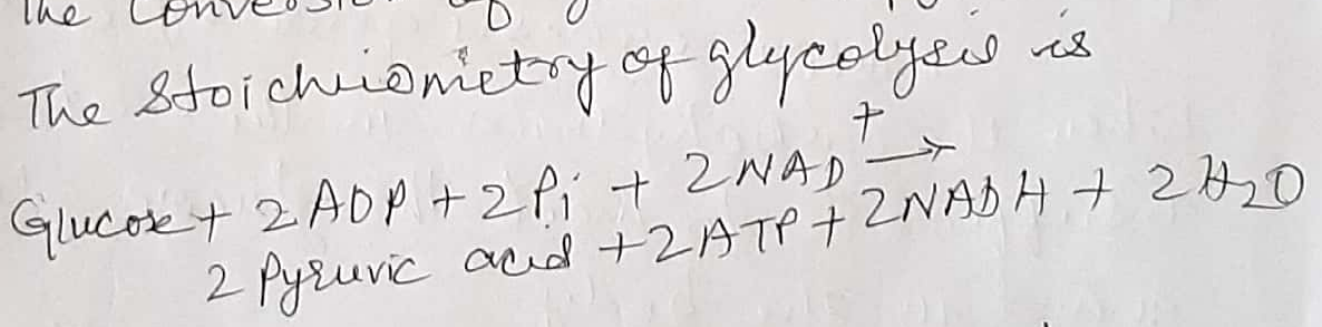 The
The Stoichiometry of glycolysis is
Glucose + 2 ADP + 2 Pi + 2 NAD⁺ →
2 Pyruvic acid + 2 ATP + 2 NADH + 2 H₂O